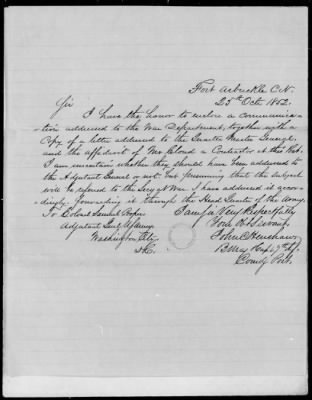 Fort Arbuckle C.N.
25th Oct. 1852.
Sir
I have the honor to enclose a communica-
tion addressed to the War Department, together with a
Copy of a letter addressed to the Quarter Master General
and the affidavit of Mr. a Contractor at this Post.
I am uncertain whether they should have been addressed to
the Adjutant General or not. but presuming that the subject
will be referred to the Secy of War I have addressed it accor-
dingly. forwarding it through the Head Quarters of the Army.
I am Sir Very Respectfully
To Colonel Samuel Cooper
Your Obt Servant
Adjutant Genl U.S. Army
John C Henshaw
Washington City
B Maj Capt 7th Inf
D.C.
Comdg Post.